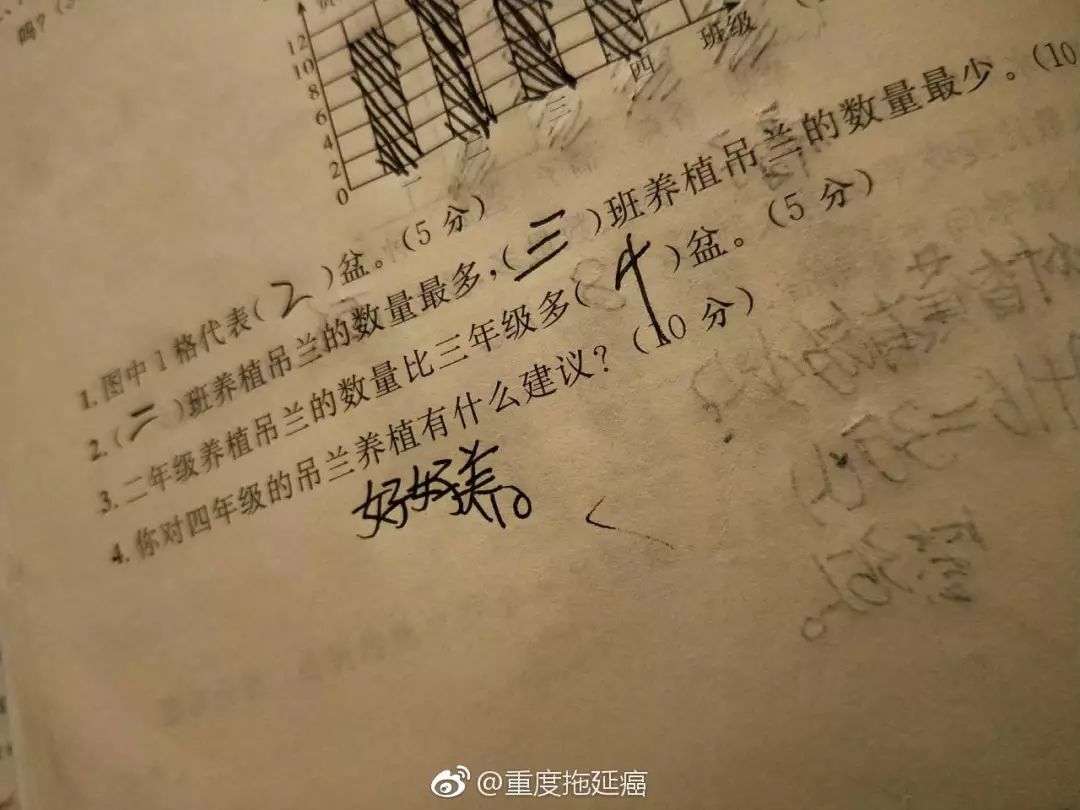 吗？
12
10
8
6
4
2
0
一
二
三
四
班级
1.图中1格代表(2)盆。(5分)
2.(二)班养植吊兰的数量最多,(三)班养植吊兰的数量最少。(10
3.二年级养植吊兰的数量比三年级多(4)盆。(5分)
4.你对四年级的吊兰养植有什么建议?(10分)
好好养。
@重度拖延癌